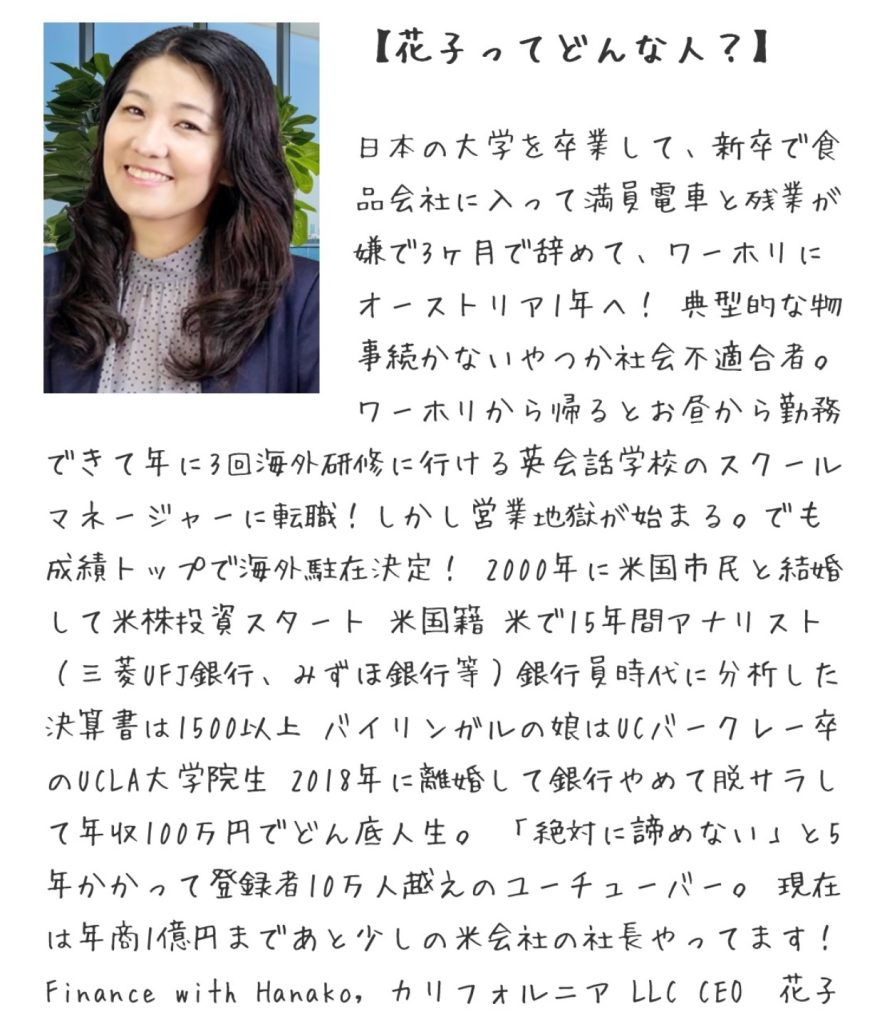 【花子ってどんな人？】
日本の大学を卒業して、新卒で食
品会社に入って満員電車と残業が
嫌で3ヶ月で辞めて、ワーホリに
オーストリア1年へ！ 典型的な物
事続かないやつか社会不適合者。
ワーホリから帰るとお昼から勤務
できて年に3回海外研修に行ける英会話学校のスクール
マネージャーに転職！しかし営業地獄が始まる。でも
成績トップで海外駐在決定！ 2000年に米国市民と結婚
して米株投資スタート 米国籍 米で15年間アナリスト
（三菱UFJ銀行、みずほ銀行等）銀行員時代に分析した
決算書は1500以上 バイリンガルの娘はUCバークレー卒
のUCLA大学院生 2018年に離婚して銀行やめて脱サラし
て年収100万円でどん底人生。 「絶対に諦めない」と5
年かかって登録者10万人越えのユーチューバー。 現在
は年商1億円まであと少しの米会社の社長やってます！
Finance with Hanako, カリフォルニア LLC CEO 花子